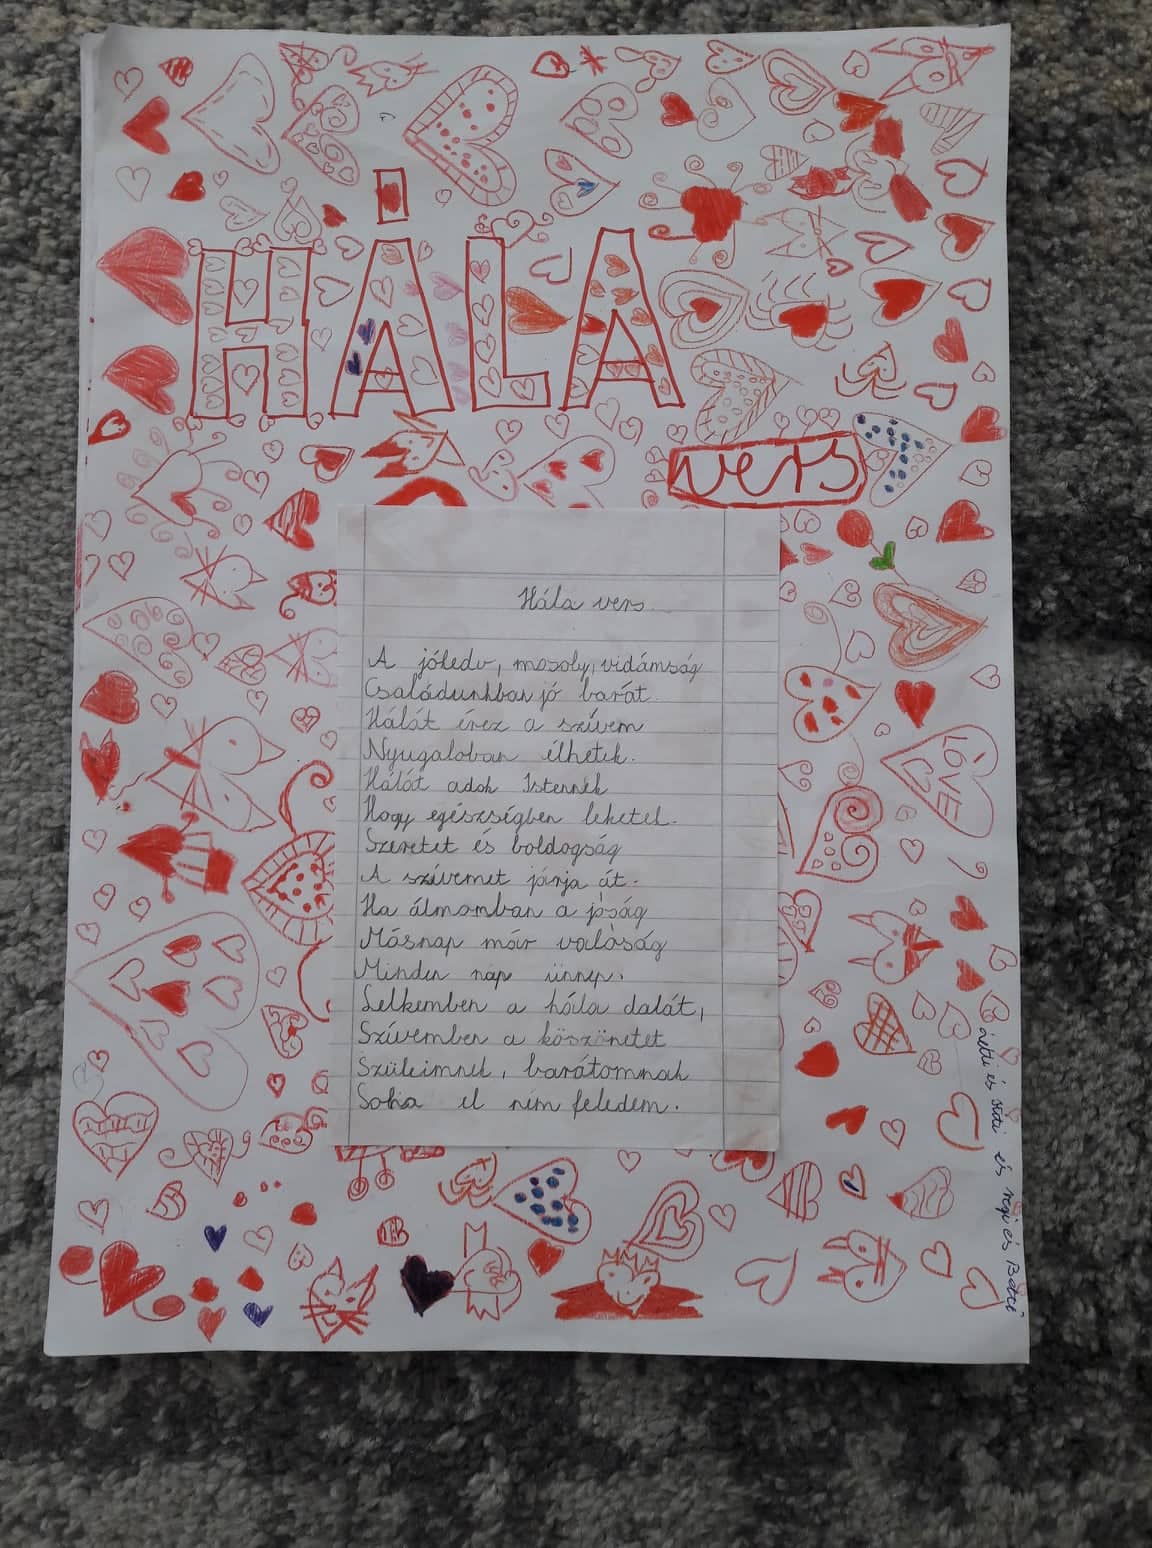 HÁLA
vers
Hála vers
A jókedv, mosoly, vidámság
Családunkban jó barát.
Hálát érez a szívem
Nyugaloban élhetek.
Hálát adok Istennek
Hogy egészségben leketek.
Szeretet és boldogság
A szívemet járja át.
Ha álmomban a jóság
Másnap már valóság
Minden nap ünnep.
Lelkemben a hála dalát,
Szívemben a köszönetet
Szüleimnek, barátomnak
Soha el nem feledem.
LOVE
és és